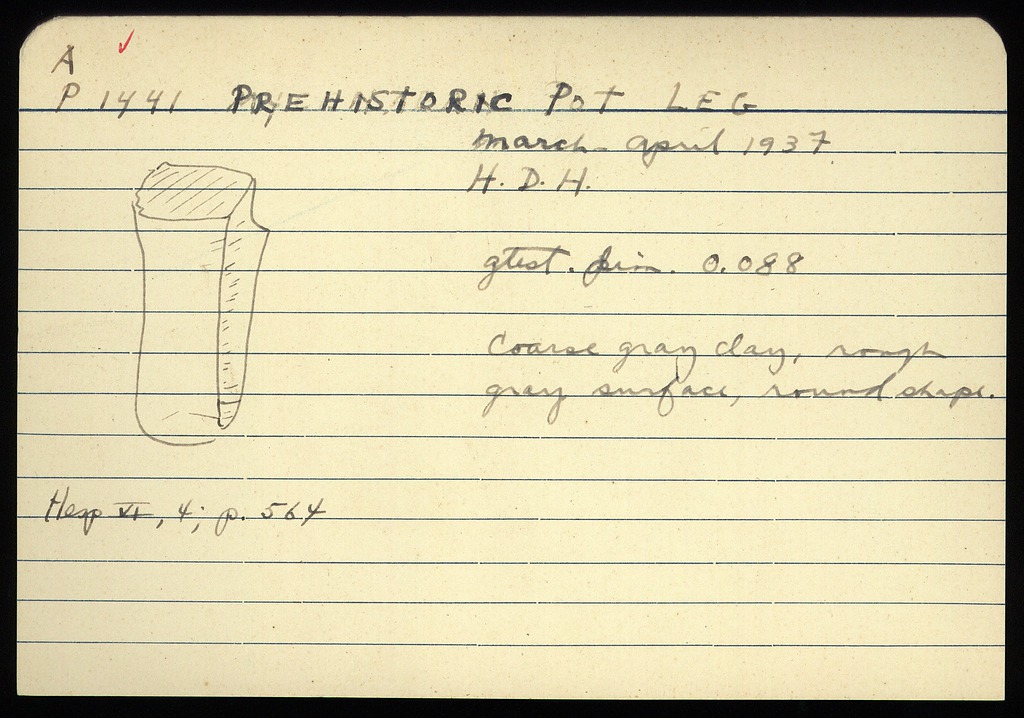 A
P 1441 PREHISTORIC POT LEG
March-April 1937
H. D. H.
gtest. dim. 0.088
Coarse gray clay, rough
gray surface, round shape.
Hesp VI, 4; p. 564